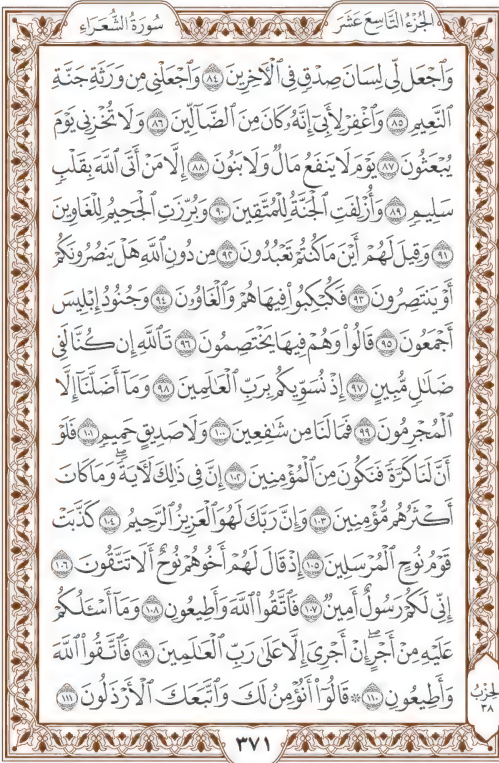 الجُزْءُ التَّاسِعَ عَشَرَ
سُورَةُ الشُّعَرَاءِ
وَٱجْعَل لِّي لِسَانَ صِدْقٍ فِي ٱلْأَخِرِينَ ٨٤ وَٱجْعَلْنِي مِن وَرَثَةِ جَنَّةِ
ٱلنَّعِيمِ ٨٥ وَٱغْفِرْ لِأَبِيٓ إِنَّهُۥ كَانَ مِنَ ٱلضَّآلِّينَ ٨٦ وَلَا تُخْزِنِي يَوْمَ
يُبْعَثُونَ ٨٧ يَوْمَ لَا يَنفَعُ مَالٌ وَلَا بَنُونَ ٨٨ إِلَّا مَنْ أَتَى ٱللَّهَ بِقَلْبٍ
سَلِيمٍ ٨٩ وَأُزْلِفَتِ ٱلْجَنَّةُ لِلْمُتَّقِينَ ٩٠ وَبُرِّزَتِ ٱلْجَحِيمُ لِلْغَاوِينَ
٩١ وَقِيلَ لَهُمْ أَيْنَ مَا كُنتُمْ تَعْبُدُونَ ٩٢ مِن دُونِ ٱللَّهِ هَلْ يَنصُرُونَكُمْ
أَوْ يَنتَصِرُونَ ٩٣ فَكُبْكِبُوا۟ فِيهَا هُمْ وَٱلْغَاوُۥنَ ٩٤ وَجُنُودُ إِبْلِيسَ
أَجْمَعُونَ ٩٥ قَالُوا۟ وَهُمْ فِيهَا يَخْتَصِمُونَ ٩٦ تَٱللَّهِ إِن كُنَّا لَفِي
ضَلَٰلٍ مُّبِينٍ ٩٧ إِذْ نُسَوِّيكُم بِرَبِّ ٱلْعَٰلَمِينَ ٩٨ وَمَآ أَضَلَّنَآ إِلَّا
ٱلْمُجْرِمُونَ ٩٩ فَمَا لَنَا مِن شَٰفِعِينَ ١٠٠ وَلَا صَدِيقٍ حَمِيمٍ ١٠١ فَلَوْ
أَنَّ لَنَا كَرَّةً فَنَكُونَ مِنَ ٱلْمُؤْمِنِينَ ١٠٢ إِنَّ فِي ذَٰلِكَ لَأٓيَةً ۖ وَمَا كَانَ
أَكْثَرُهُم مُّؤْمِنِينَ ١٠٣ وَإِنَّ رَبَّكَ لَهُوَ ٱلْعَزِيزُ ٱلرَّحِيمُ ١٠٤ كَذَّبَتْ
قَوْمُ نُوحٍ ٱلْمُرْسَلِينَ ١٠٥ إِذْ قَالَ لَهُمْ أَخُوهُمْ نُوحٌ أَلَا تَتَّقُونَ ١٠٦
إِنِّي لَكُمْ رَسُولٌ أَمِينٌ ١٠٧ فَٱتَّقُوا۟ ٱللَّهَ وَأَطِيعُونِ ١٠٨ وَمَآ أَسْـَٔلُكُمْ
عَلَيْهِ مِنْ أَجْرٍ ۖ إِنْ أَجْرِيَ إِلَّا عَلَىٰ رَبِّ ٱلْعَٰلَمِينَ ١٠٩ فَٱتَّقُوا۟ ٱللَّهَ
وَأَطِيعُونِ ١١٠ ۞ قَالُوٓا۟ أَنُؤْمِنُ لَكَ وَٱتَّبَعَكَ ٱلْأَرْذَلُونَ ١١١
الحِزْبُ
٣٨
٣٧١